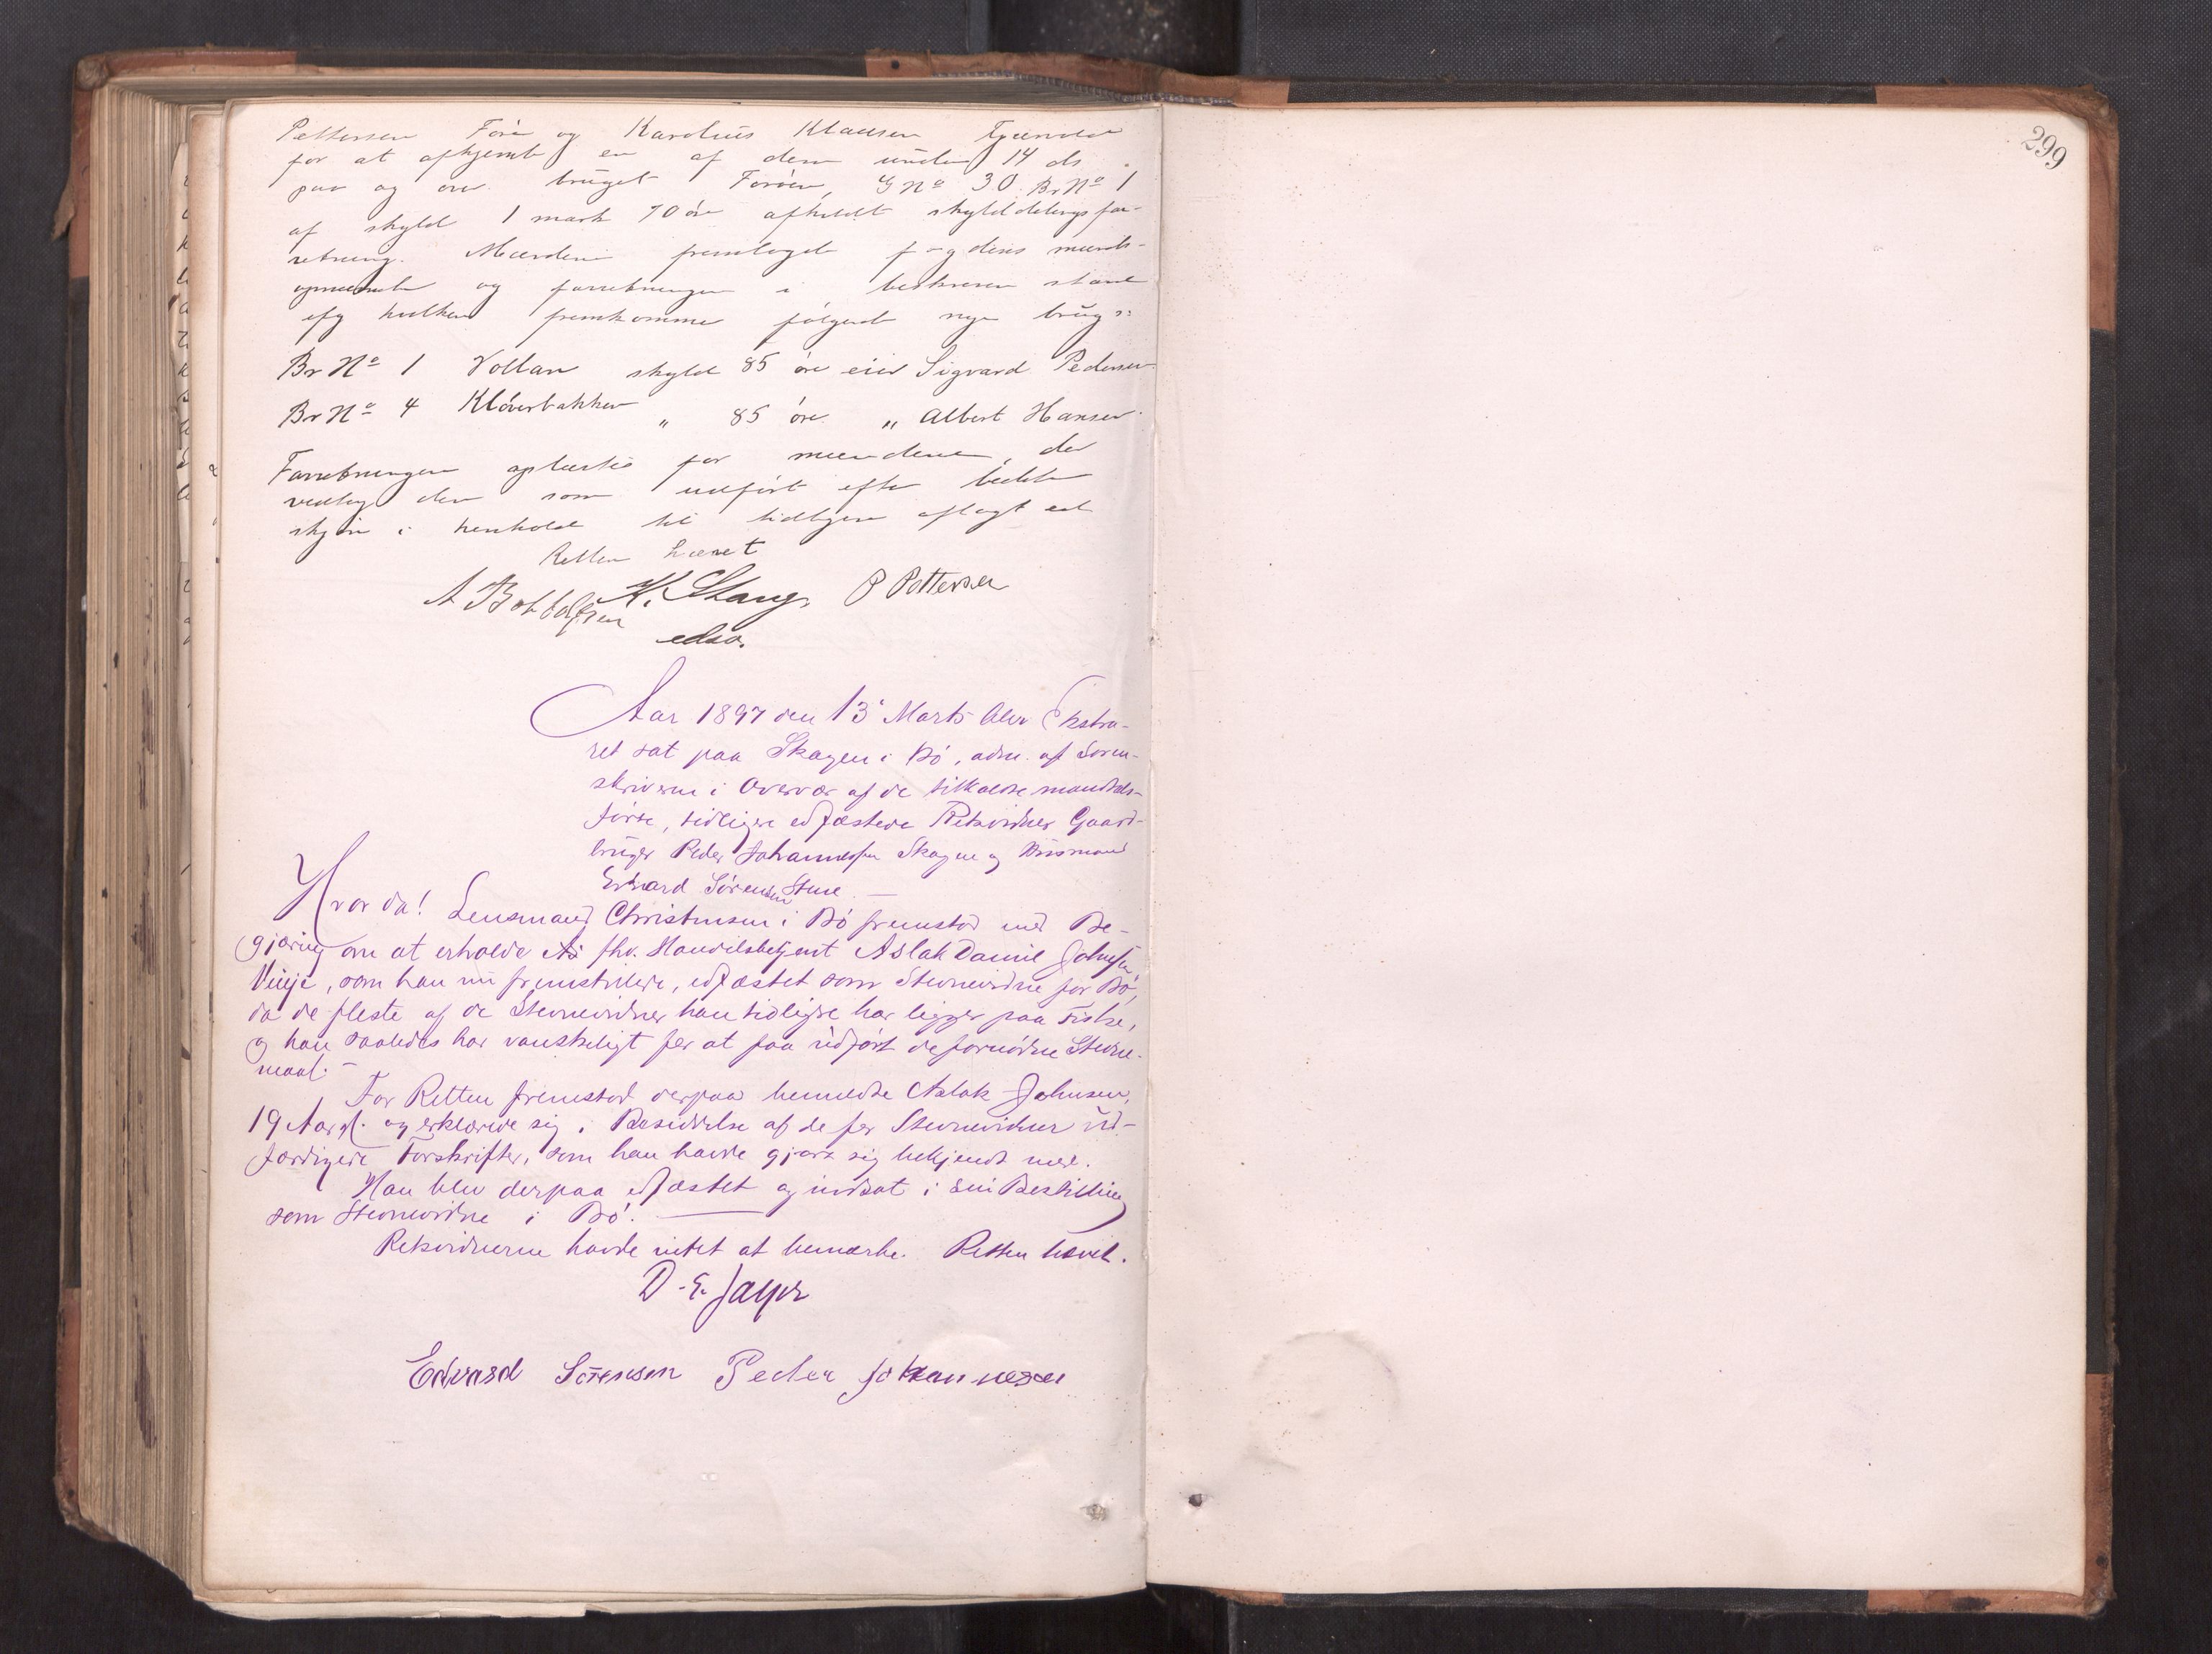 Pettersen Före og Karolius Klausen
for at afhjemle en af dem under 14 ds
paa og over bruget Forøen, G No 30 Br No 1
af skyld 1 mark 70 øre afholdt skylddelingsfor-
retning. Mændene fremlagde fogdens mands-
opnævnelse og forretningen i beskreven stand
efter hvilken fremkommer følgende nye brug:
Br No 1 Vollan skyld 85 øre eier Sigvard Pedersen
Br No 4 Kløverbakken " 85 øre " Albert Hansen.
Forretningen oplæstes for mændene, der
vedtog den som udført efter bedste
skjøn i henhold til tidligere aflagt ed
Retten hævet
A Bottolfsen K. Stang. P Pettersen
edsv.
Aar 1897 den 13' Marts blev Ekstra-
ret sat paa Skagen i Bø, adm. af Soren-
skriveren i Overvær af de tilkaldte mandtals-
førte, tidligere edfæstede Retsvidner Gaard-
bruger Peder Johannessen Skagen og Husmand
Edvard Sørensen Steine –
Hvorda! Lensmand Christensen i Bø fremstod med Be-
gjæring om at erholde fhv. Handelsbetjent Aslak Daniel Johnsen
Vinje, som han nu fremstillede, edfæstet som Stevnevidne for Bø,
da de fleste af de Stevnevidner han tidligere har ligger paa Fiske,
og han saaledes har vanskeligt for at faa udført de fornødne Stevne-
maal. –
For Retten fremstod derpaa bemeldte Aslak Johnsen,
19 Aar gl. og erklærede sig i Besiddelse af de for Stevnevidner ud-
færdigede Forskrifter, som han havde gjort sig bekjendt med.
Han blev derpaa edfæstet og indsat i sin Bestilling
som Stevnevidne i Bø. –
Retsvidnerne havde intet at bemærke. Retten hævet.
Edvard Sørensen Peder Johannesen
299